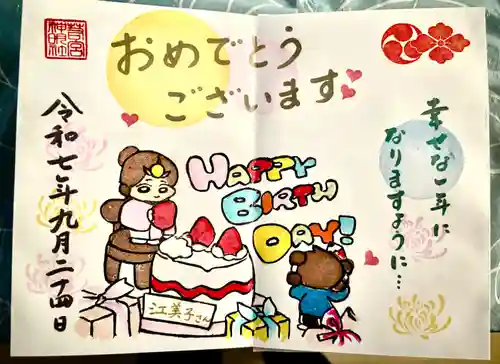 おめでとう
ございます
幸せな一年に
なりますように…
HAPPY
BIRTH
DAY!
江美子さん
令和七年九月二十四日